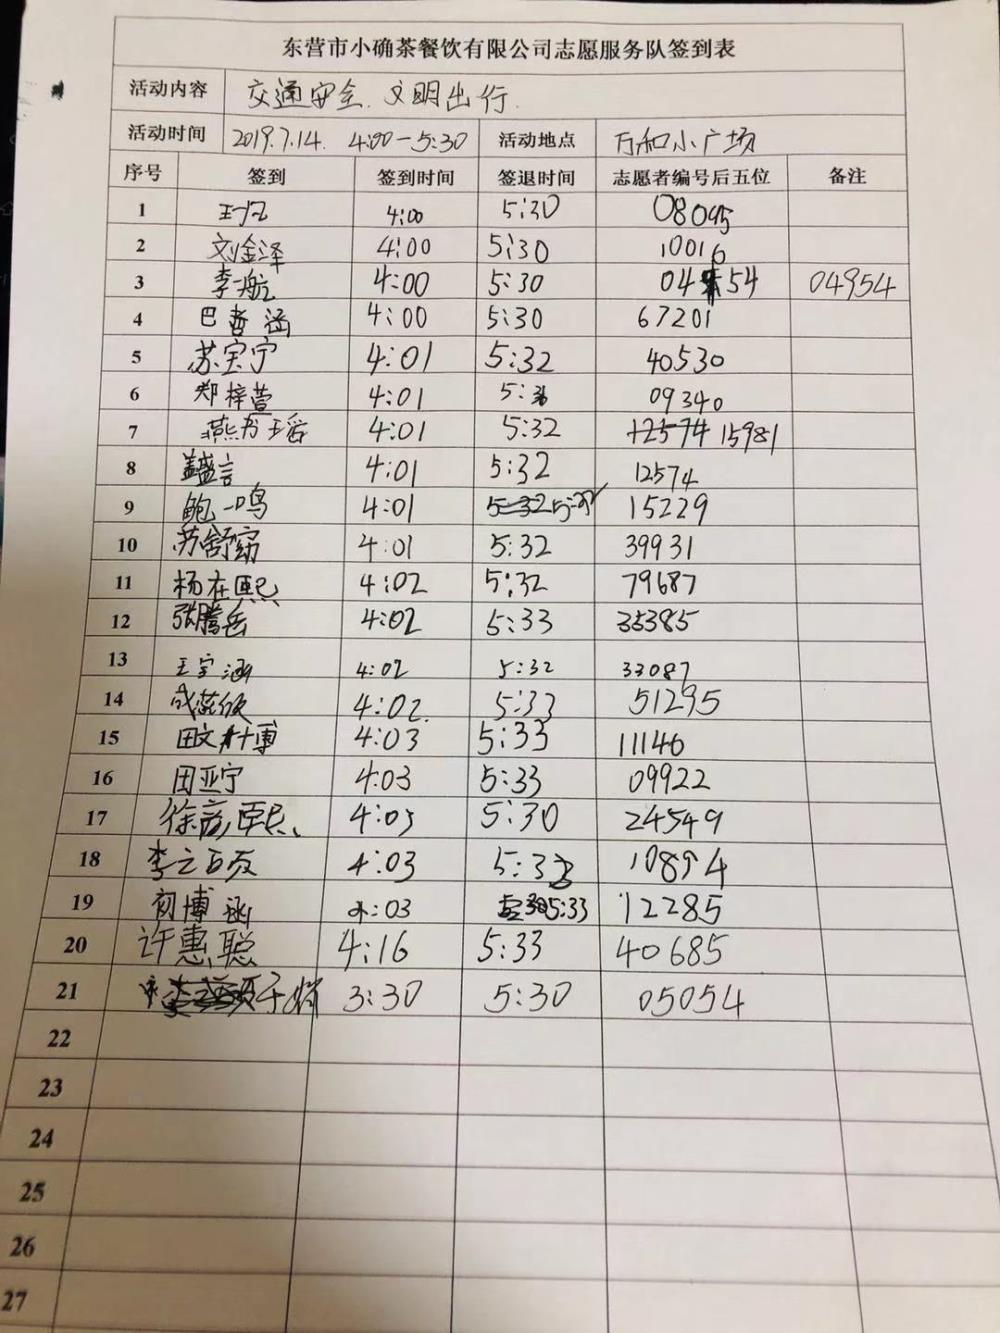 东营市小确茶餐饮有限公司志愿服务队签到表
活动内容 交通安全.文明出行.
活动时间 2019.7.14. 4:00-5:30 活动地点 万和小广场
序号 签到 签到时间 签退时间 志愿者编号后五位 备注
1 4:00 5:30 08095
2 刘金泽 4:00 5:30 10016
3 李一航 4:00 5:30 04 54 04954
4 巴哲涵 4:00 5:30 67201
5 苏宝宁 4:01 5:32 40530
6 郑梓萱 4:01 5: 09340
7 燕书瑶 4:01 5:32 12574 15981
8 盖盛言 4:01 5:32 12574
9 鲍一鸣 4:01 5:32 15229
10 苏舒窈 4:01 5:32 39931
11 杨在熙 4:02 5:32 79687
12 张腾岳 4:02 5:33 35385
13 王宇涵 4:02 5:32 33087
14 4:02. 5:33 51295
15 4:03 5:33 11146
16 田亚宁 4:03 5:33 09922
17 徐彦熙 4:03 5:30 24549
18 李之百 4:03 5:33 10894
19 初博涵 4:03 5:33 12285
20 许惠聪 4:16 5:33 40685
21 3:30 5:30 05054
22
23
24
25
26
27